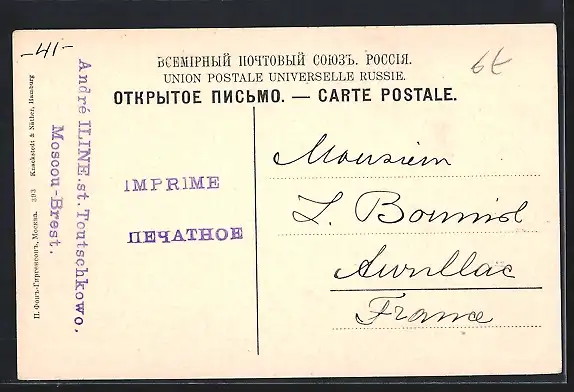 -41-
6t
ВСЕМІРНЫЙ ПОЧТОВЫЙ СОЮЗЪ. РОССІЯ.
UNION POSTALE UNIVERSELLE RUSSIE.
ОТКРЫТОЕ ПИСЬМО. — CARTE POSTALE.
André ILINE.st.Toutschkowo,
Moscou-Brest.
П. Фонъ-Гиргенсонъ, Москва. 393 Knackstedt & Näther, Hamburg
IMPRIME
ПЕЧАТНОЕ
Monsieur
L.
Aurillac
France